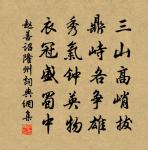 三山高峭拔
鼎峙各爭雄
秀氣鍾英物
衣冠盛蜀中
趙善詔隆州詞典網集